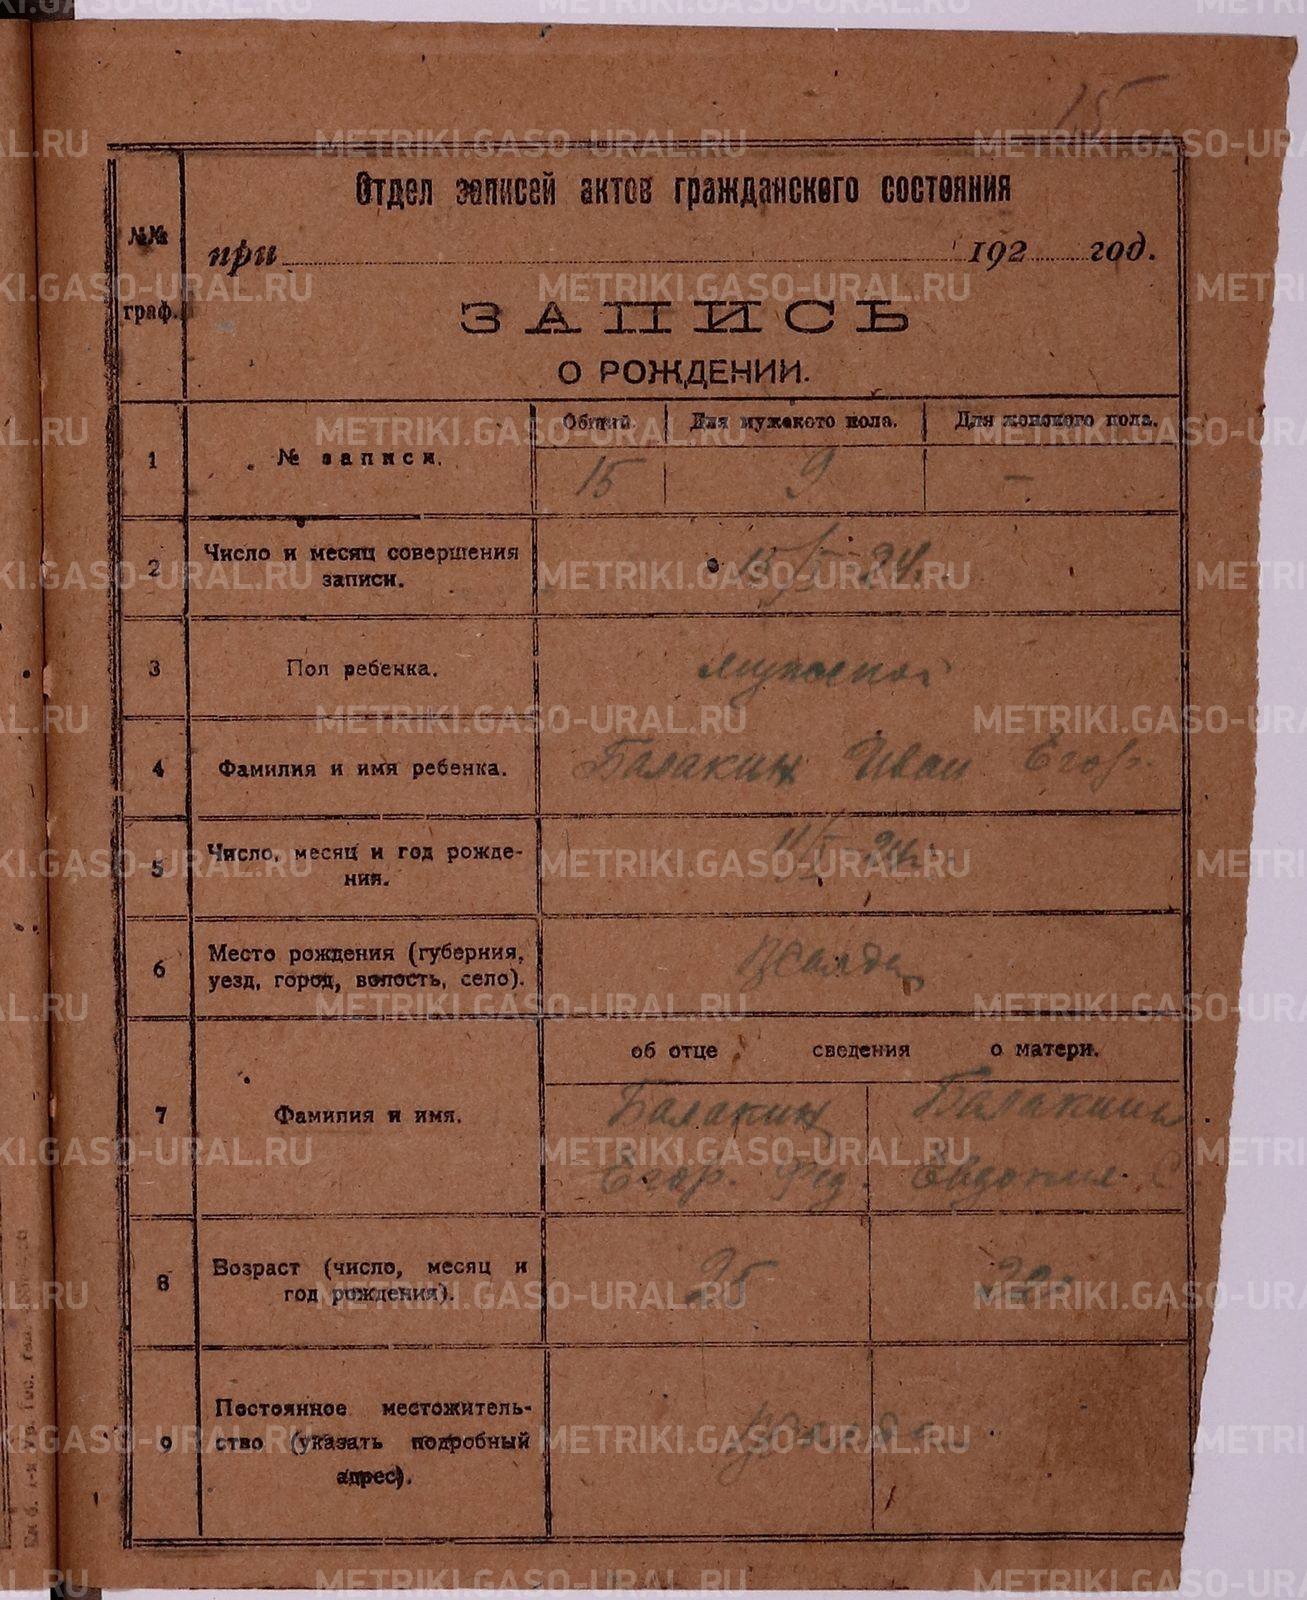 15
Отдел записей актов гражданского состояния
при 192 год.
№№
граф.
ЗАПИСЬ
О РОЖДЕНИИ.
Общий. Для мужского пола. Для женского пола.
1 № записи. 15 9 —
2 Число и месяц совершения
записи.
15/5 24.
3 Пол ребенка. мужской
4 Фамилия и имя ребенка. Балакин Иван Егор.
5 Число, месяц и год рожде-
ния.
11/5 24
6 Место рождения (губерния,
уезд, город, волость, село).
об отце сведения о матери.
7 Фамилия и имя.
Балакин Балакина
Егор. Фед. Евдокия С
8 Возраст (число, месяц и
год рождения).
25
9 Постоянное местожитель-
ство (указать подробный
адрес).
METRIKI.GASO-URAL.RU